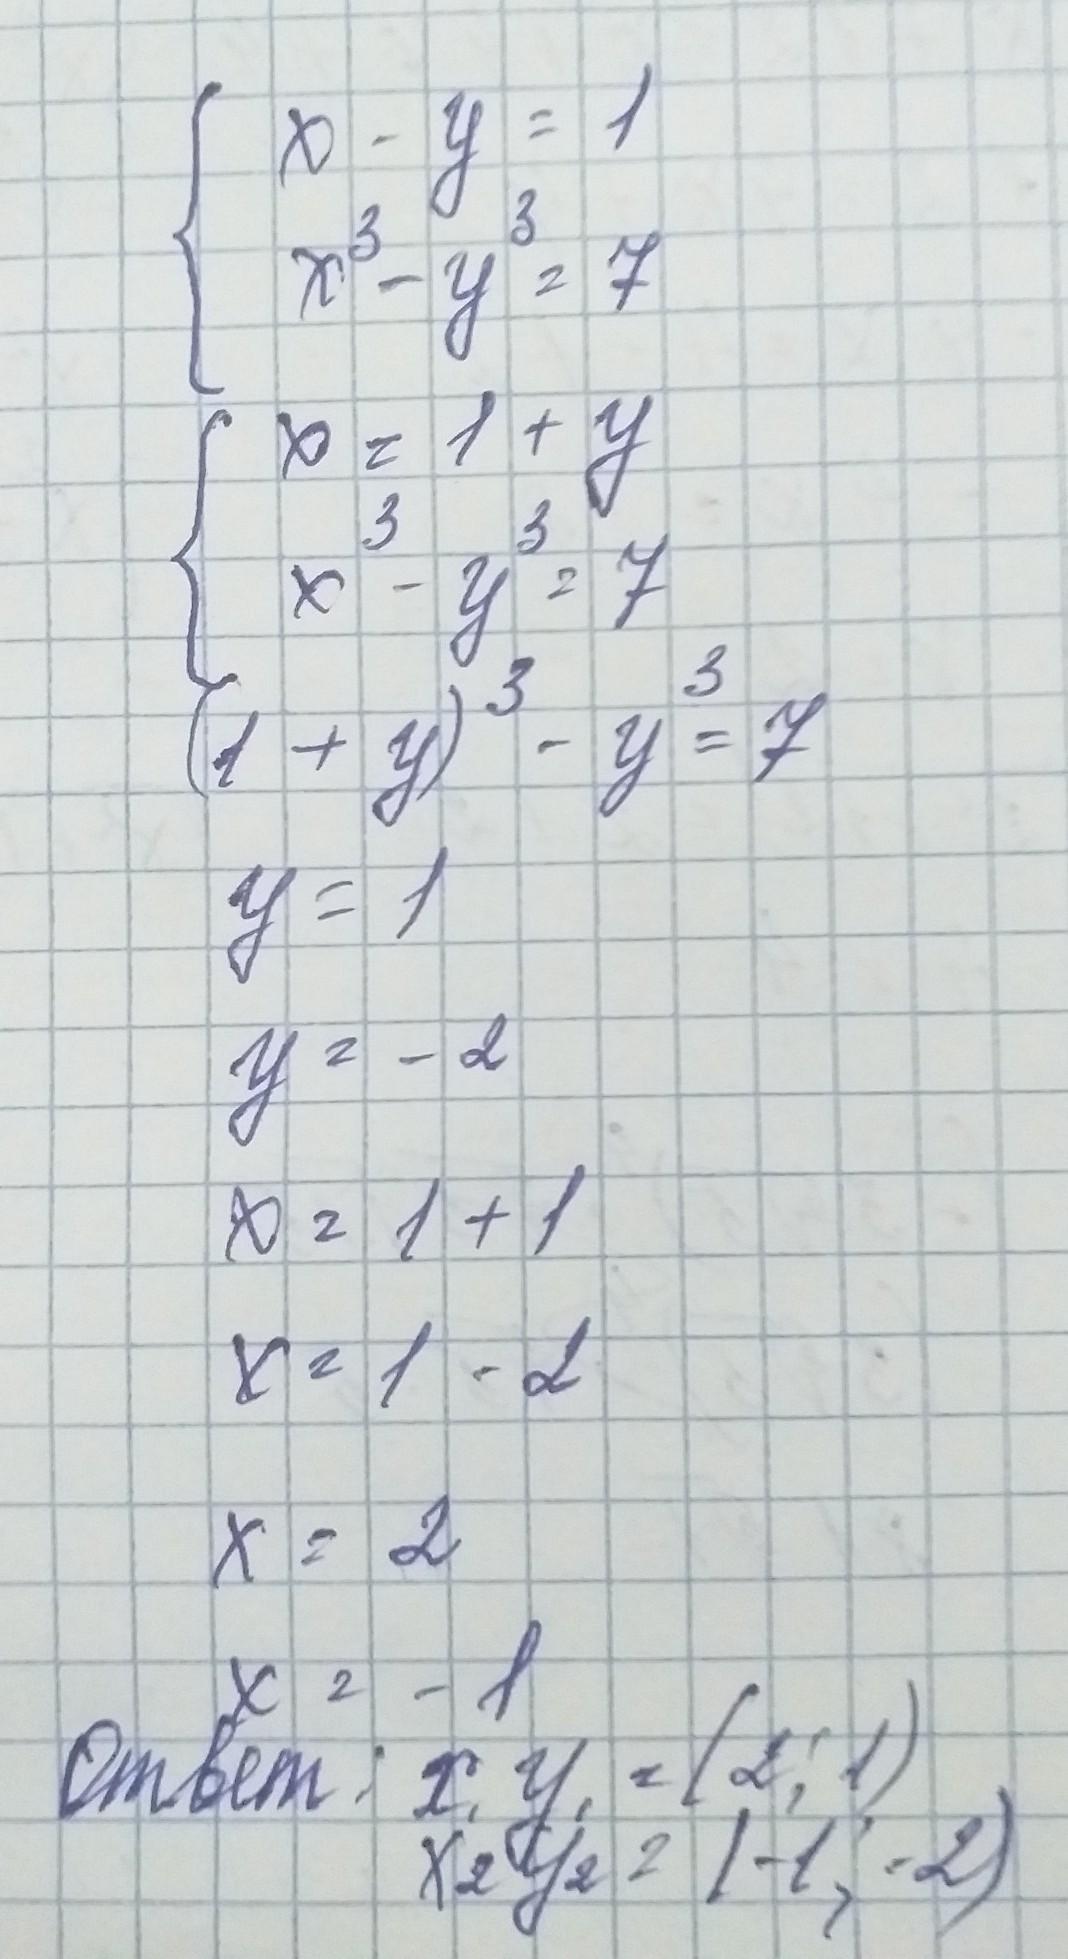 x - y = 1
x³ - y³ = 7
x = 1 + y
x³ - y³ = 7
(1 + y)³ - y³ = 7
y = 1
y = - 2
x = 1 + 1
x = 1 - 2
x = 2
x = - 1
Ответ: x₁ y₁ = (2; 1)
x₂ y₂ = (-1; -2)